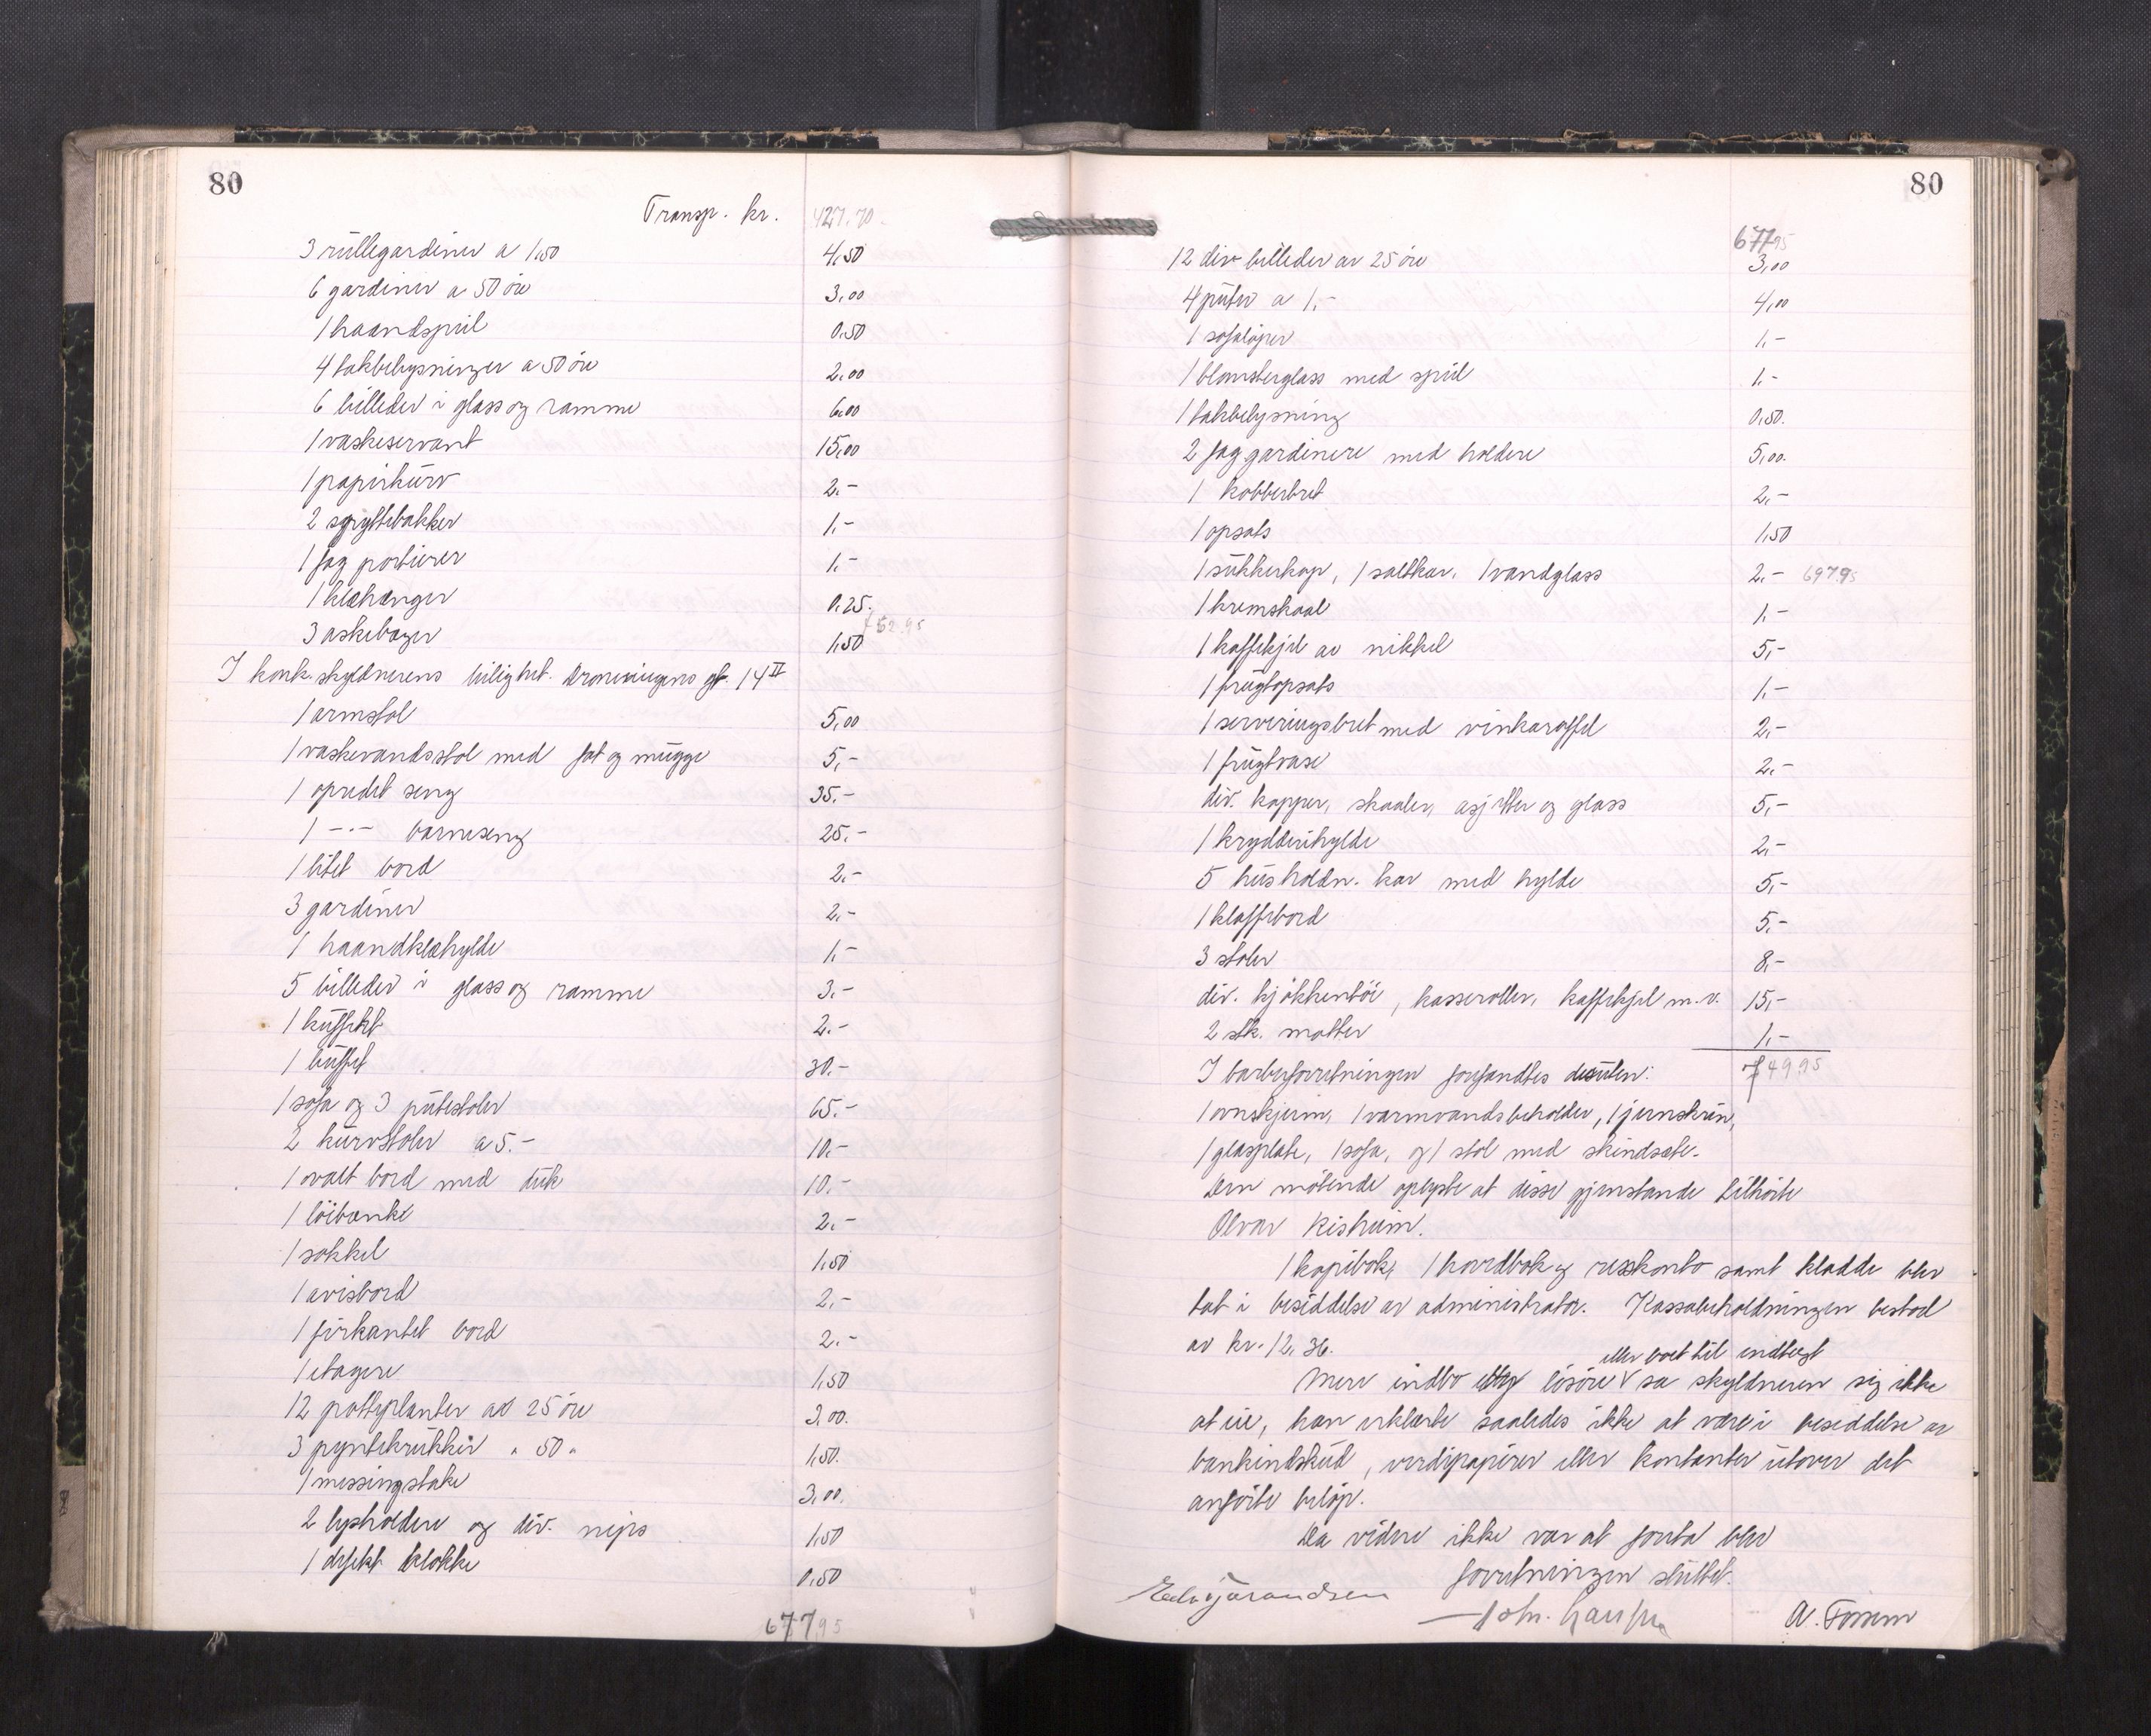 80
Transp. kr. 427.70.
3 rullegardiner a 1,50 4,50
6 gardiner a 50 öre 3,00
1 haandspeil 0,50
4 takbelysninger a 50 öre 2,00
6 billeder i glass og ramme 6,00
1 vaskeservant 15,00
1 papirkurv 2.-
2 spyttebakker 1.-
1 fag portierer 1.-
1 klæhænger 0.25.
3 askebæger 1,50
452.95
I konk.skyldnerens leilighet. Dronningens gt. 14 II
1 armstol 5,00
1 vaskevandsstol med fat og mugge 5,-
1 opredt seng 35.-
1 -·- barneseng 25.-
1 litet bord 2.-
3 gardiner 2.-
1 haandklæhylde 1.-
5 billeder i glass og ramme 3.-
1 kuffert 2.-
1 buffet 30.-
1 sofa og 3 putestoler 65.-
2 kurvstoler a 5.- 10.-
1 ovalt bord med duk 10.-
1 löibænke 2.-
1 sokkel 1,50
1 avisbord 2.-
1 firkantet bord 2.-
1 etagere 1,50
12 potteplanter av 25 öre 3.00.
3 pyntekrukker " 50 " 1,50.
1 messingstake 3,00.
2 lysholdere og div. nips 1,50
1 defekt klokke 0,50
677,95
80
677,95
12 div billeder av 25 öre 3,00
4 puter a 1.- 4,00
1 sofalöper 1.-
1 blomsterglass med speil 1.-
1 takbelysning 0,50.
2 fag gardinere med holdere 5,00.
1 kobberbret 2.-
1 opsats 1,50
1 sukkerkop, 1 saltkar, 1 vandglass 2.- 697.95
1 kremskaal 1.-
1 kaffekjel av nikkel 5,-
1 frugtopsats 1.-
1 serveringsbret med vinkaraffel 2,-
1 frugtvase 2.-
div. kopper, skaaler, asjetter og glass 5,-
1 krydderihylde 2,-
5 husholdn. kar med hylde 5,-
1 klaffebord 5.-
3 stoler 8,-
div. kjökkentöi, kasseroller, kaffekjel m.v. 15,-
2 stk. matter 1.-
I barberforretningen forefandtes desuten: 749.95
1 ovnskjerm, 1 varmvandsbeholder, 1 jernskrin,
1 glasplate, 1 sofa, og 1 stol med skindsæte.
Den mötende oplyste at disse gjenstande tilhörte
Olvar Kisheim.
1 kopibok, 1 hovedbok og resskonto samt kladde blev
tat i besiddelse av administrator. Kassabeholdningen bestod
av kr. 12,36.
eller bort til indtægt
Mere indbo eller lösöre sa skyldneren sig ikke
at eie, han erklærte saaledes ikke at være i besiddelse av
bankindskud, verdipapirer eller kontanter utover det
anförte belöp.
Da videre ikke var at foreta blev
forretningen sluttet.
A. Fossem